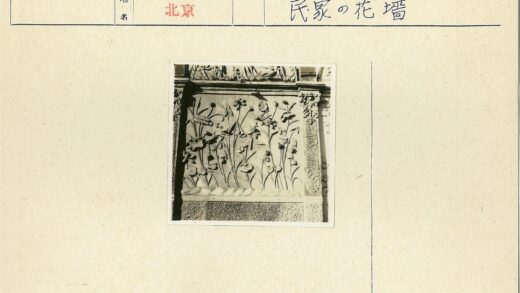 地名
北京
民家の花墻